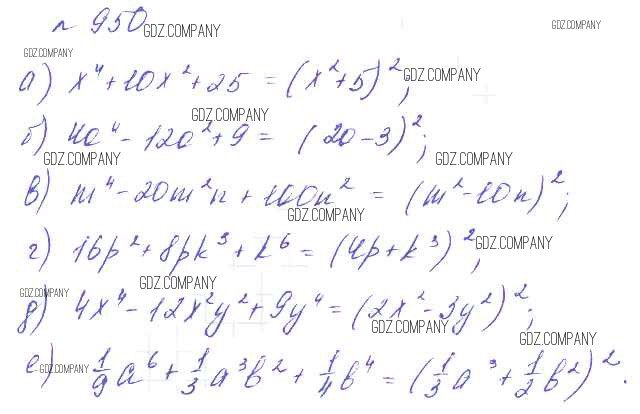 № 950 GDZ.COMPANY GDZ.COMPANY
GDZ.COMPANY
а) x⁴+10x²+25 = (x²+5)²; GDZ.COMPANY
GDZ.COMPANY
б) 4a⁴ - 12a²+9 = (2a-3)²;
GDZ.COMPANY GDZ.COMPANY
в) m⁴-20m²n+100n² = (m²-10n)²;
GDZ.COMPANY
г) 16p²+8pk³+k⁶ = (4p+k³)²; GDZ.COMPANY
GDZ.COMPANY GDZ.COMPANY
д) 4x⁴-12x²y²+9y⁴ = (2x²-3y²)²;
GDZ.COMPANY
GDZ.COMPANY
е) GDZ.COMPANY 1/9a⁶+1/3a³b²+1/4b⁴ = (1/3a³+1/2b²)².